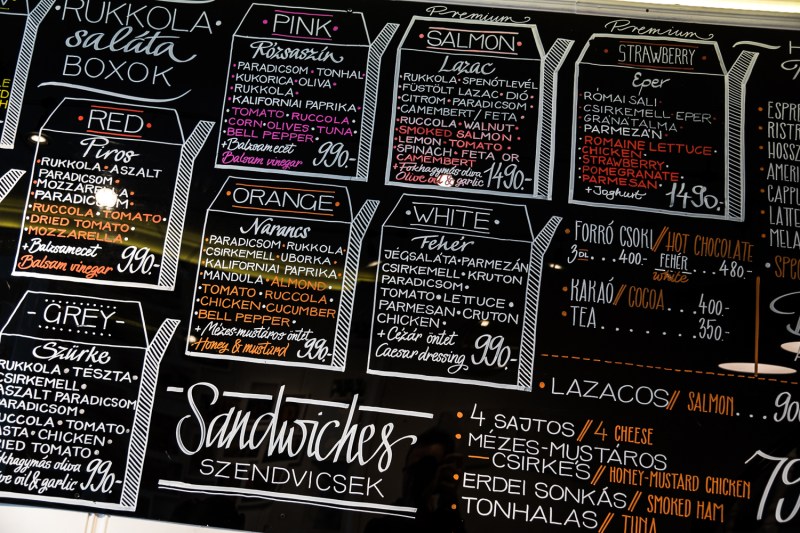 RUKKOLA
saláta
BOXOK
• RED •
Piros
RUKKOLA • ASZALT
PARADICSOM
MOZZARELLA
PARADICSOM
RUCCOLA • TOMATO
DRIED TOMATO •
MOZZARELLA
+ Balzsamecet
Balsam vinegar
990.-
- GREY -
Szürke
RUKKOLA • TÉSZTA •
CSIRKEMELL •
ASZALT PARADICSOM
PARADICSOM •
RUCCOLA • TOMATO
PASTA • CHICKEN •
DRIED TOMATO •
990.-
• PINK •
Rózsaszín
PARADICSOM • TONHAL
KUKORICA • OLIVA •
RUKKOLA •
KALIFORNIAI PAPRIKA •
TOMATO • RUCCOLA •
CORN • OLIVES • TUNA
BELL PEPPER •
+ Balzsamecet
Balsam vinegar
990.-
• ORANGE •
Narancs
PARADICSOM • RUKKOLA •
CSIRKEMELL • UBORKA •
KALIFORNIAI PAPRIKA •
MANDULA • ALMOND •
TOMATO • RUCCOLA •
CHICKEN • CUCUMBER
BELL PEPPER •
+ Mézes-mustáros öntet
Honey & mustard
990.-
Premium
SALMON
Lazac
• RUKKOLA • SPENÓTLEVÉL
FÜSTÖLT LAZAC • DIÓ •
CITROM • PARADICSOM •
CAMEMBERT / FETA •
RUCCOLA • WALNUT •
SMOKED SALMON •
LEMON • TOMATO •
SPINACH • FETA OR
CAMEMBERT
+ Fokhagymás oliva
Olive oil & garlic
1490.-
• WHITE •
Fehér
JÉGSALÁTA • PARMEZÁN
CSIRKEMELL • KRUTON
PARADICSOM •
TOMATO • LETTUCE •
PARMESAN • CRUTON
CHICKEN •
+ Cézár öntet
Caesar dressing
990.-
Premium
STRAWBERRY
Eper
RÓMAI SALI •
CSIRKEMELL • EPER •
GRÁNÁTALMA •
PARMEZÁN •
ROMAINE LETTUCE
CHICKEN •
STRAWBERRY •
POMEGRANATE •
PARMESAN •
+ Joghurt
1490.-
FORRÓ CSOKI // HOT CHOCOLATE
3DL .... 400.- FEHÉR white ... 480.-
KAKAÓ // COCOA .... 400.-
TEA .... 350.-
Sandwiches
SZENDVICSEK
• LAZACOS // SALMON ...
• 4 SAJTOS // 4 CHEESE
• MÉZES-MUSTÁROS
— CSIRKÉS // HONEY-MUSTARD CHICKEN
• ERDEI SONKÁS // SMOKED HAM
• TONHALAS // TUNA